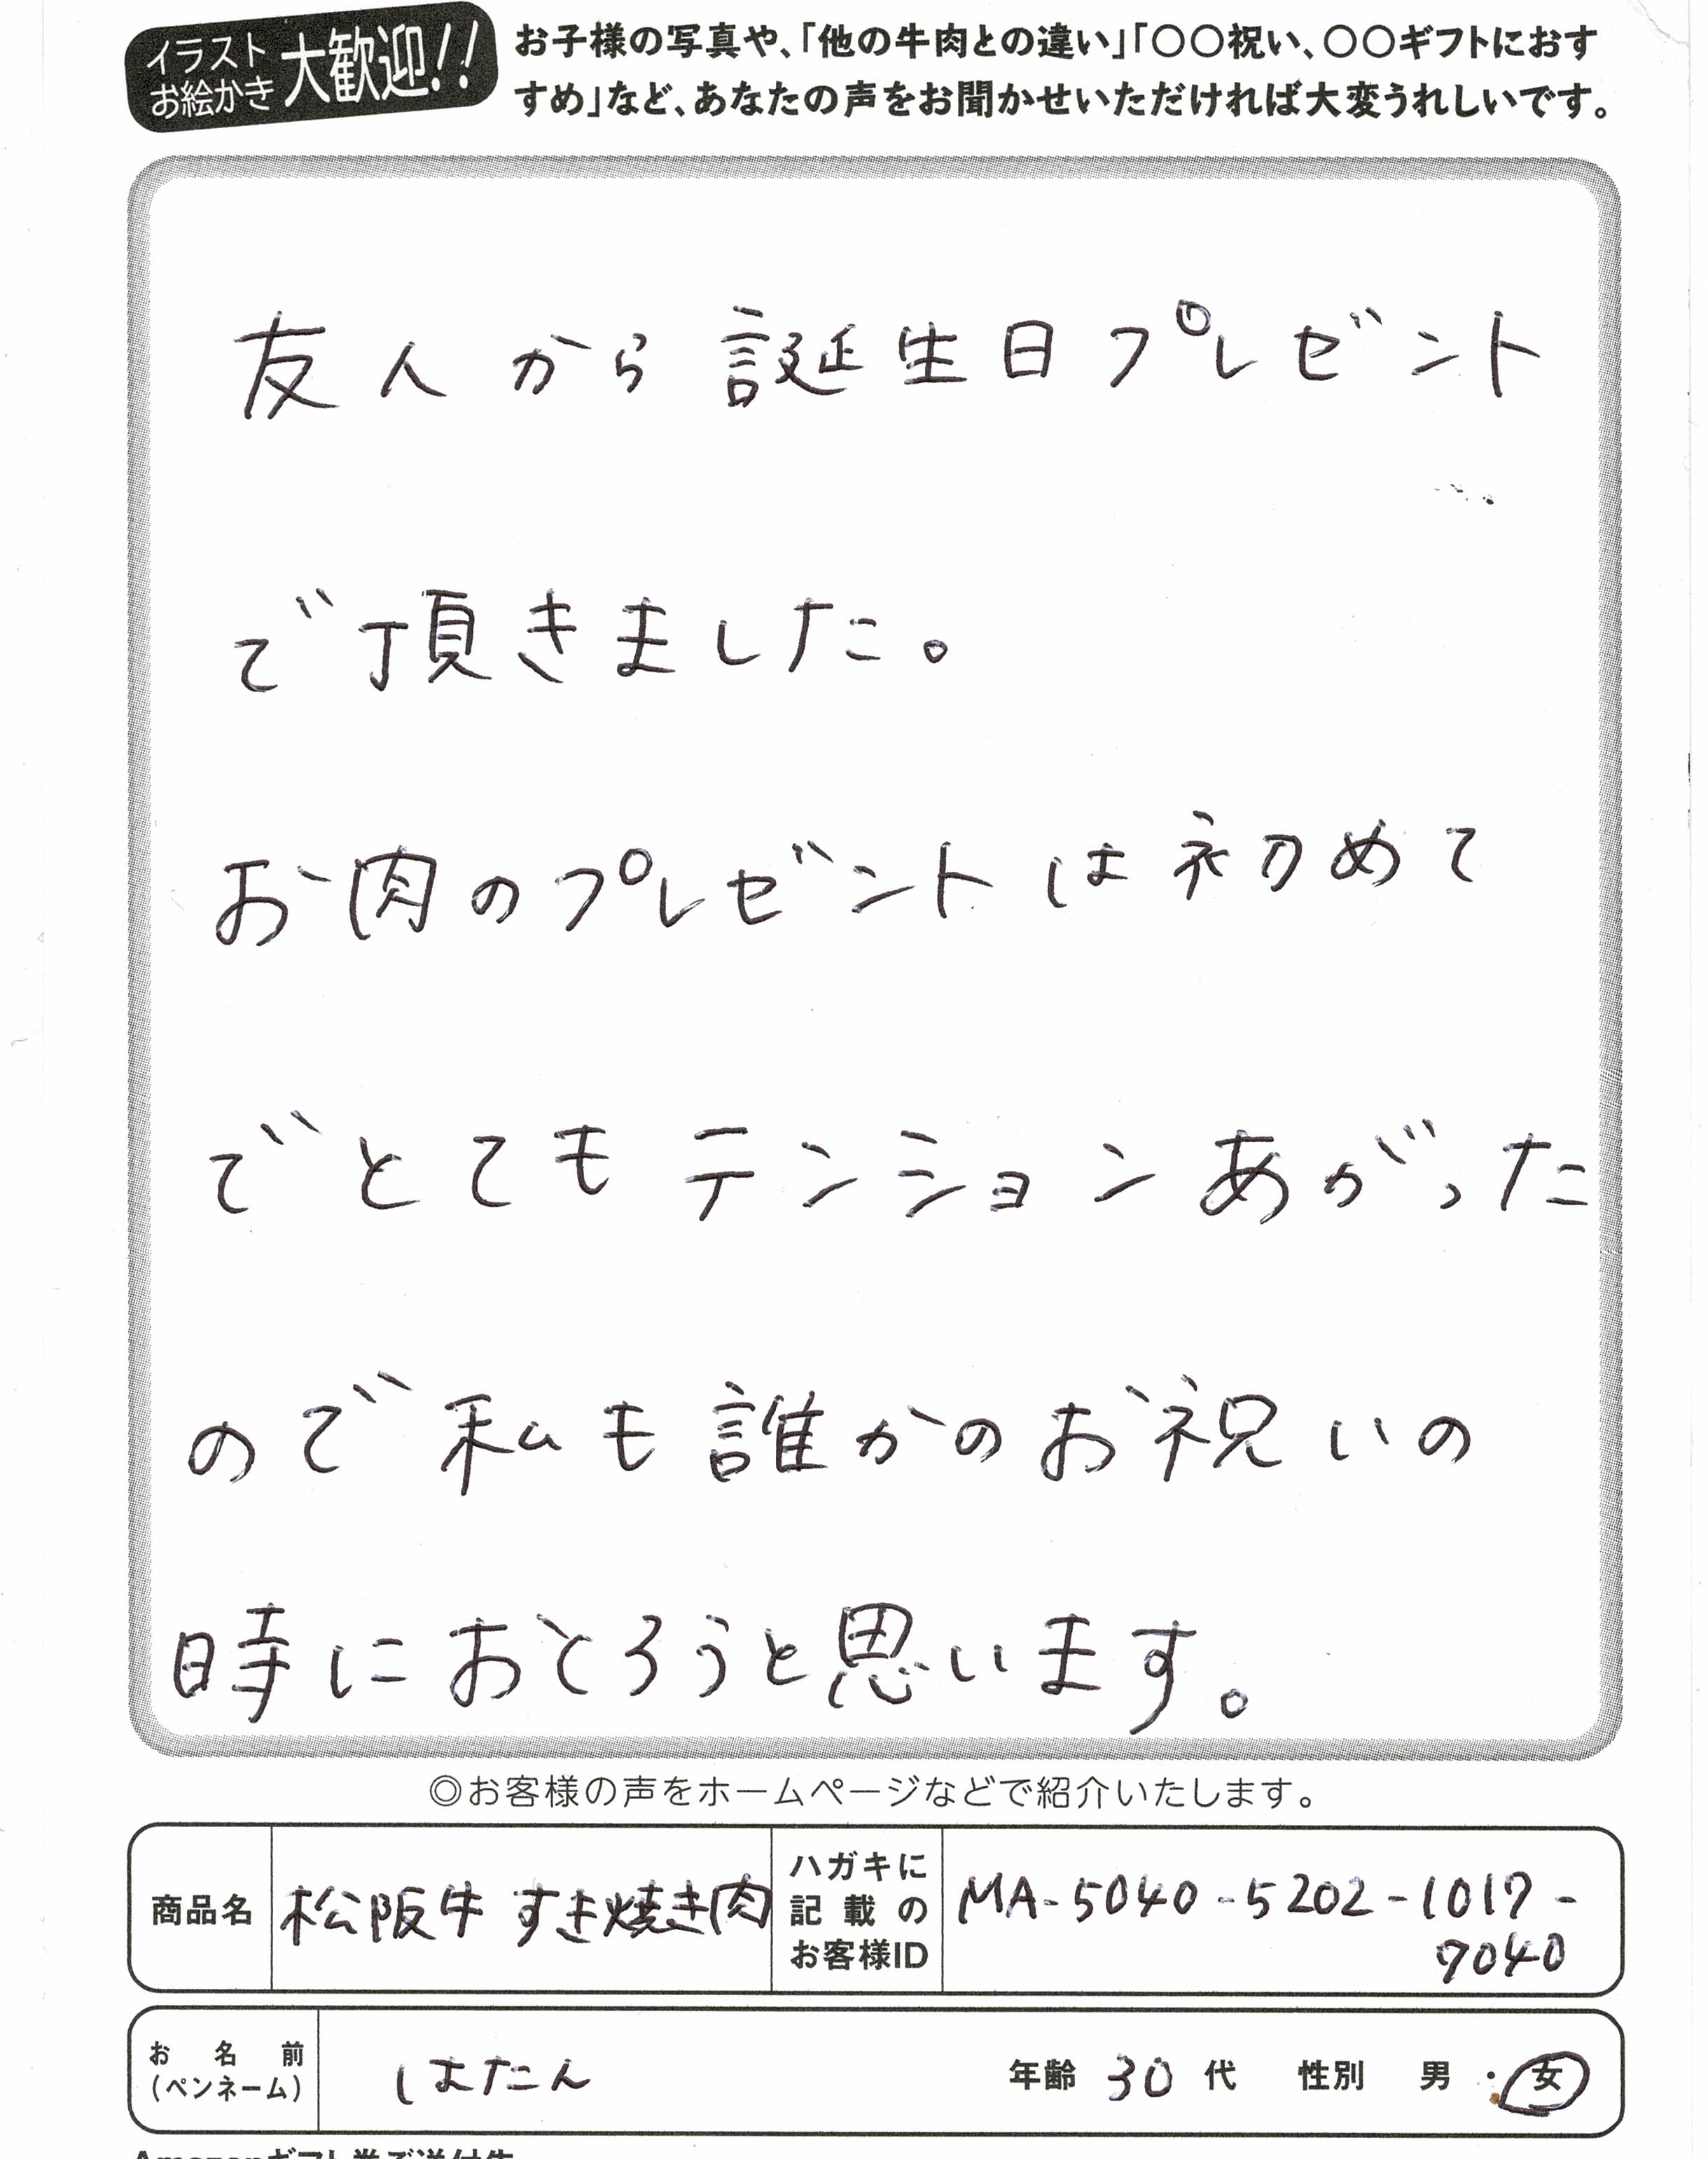 イラスト
お絵かき
大歓迎!!
お子様の写真や、「他の牛肉との違い」「〇〇祝い、〇〇ギフトにおす
すめ」など、あなたの声をお聞かせいただければ大変うれしいです。
友人から誕生日プレゼント
で頂きました。
お肉のプレゼントは初めて
でとてもテンションあがった
ので私も誰かのお祝いの
時におとろうと思います。
◎お客様の声をホームページなどで紹介いたします。
商品名
松阪牛 すき焼き肉
ハガキに
記載の
お客様ID
MA-5040-5202-1017-
9040
お名前
(ペンネーム)
はたん
年齢 30 代 性別 男・女
Amazonギフト券ご送付先